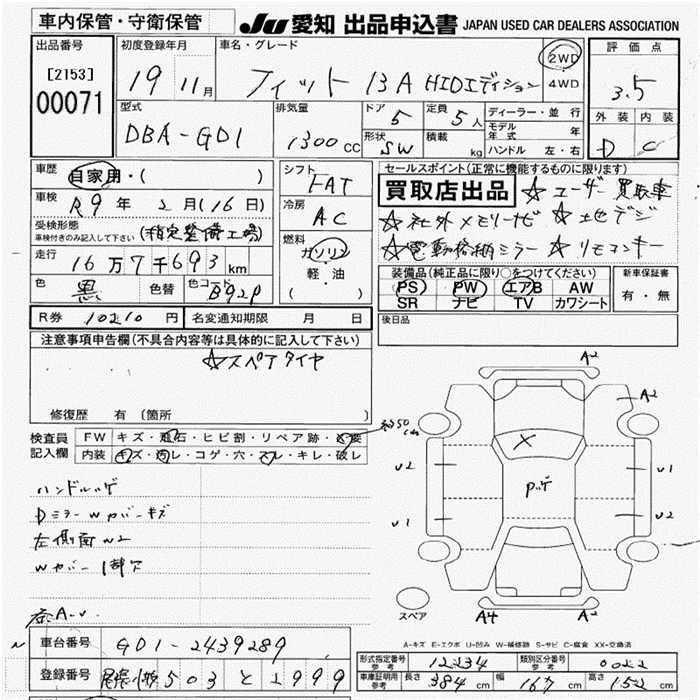 車内保管・守衛保管
JU 愛知 出品申込書 JAPAN USED CAR DEALERS ASSOCIATION
出品番号
[2153]
00071
初度登録年月
19 11月
車名・グレード
フィット 13A HIDエディション
2WD
4WD
評価点
3.5
外装 内装
D C
型式
DBA-GD1
排気量
1300cc
ドア
5
定員
5人
形状
SW
積載
kg
ディーラー・並行
モデル年式 年
ハンドル 左・右
車歴
自家用・( )
車検
R9年2月(16日)
受検形態
車検付きのみ記入して下さい
(指定整備工場)
走行
16万7千693km
色
黒
色替
色コード
B92P
シフト
FAT
冷房
AC
燃料
ガソリン
軽・油
( )
セールスポイント(正常に機能するものに限ります)
買取店出品 ☆ユーザー買取車
☆社外メモリーナビ ☆地デジ
☆電動格納ミラー ☆リモコンキー
装備品(純正品に限り○をつけてください)
PS PW エアB AW
SR ナビ TV カワシート
新車保証書
有・無
R券 10210円
名変通知期限 月 日
後日品
注意事項申告欄(不具合内容等は具体的に記入して下さい)
☆スペアタイヤ
修復歴 有 (箇所 )
検査員
記入欄
FW キズ・飛石・ヒビ割・リペア跡・×要
内装 キズ・汚レ・コゲ・穴・スレ・キレ・破レ
約50cm
ハンドルハゲ
DミラーWカバーキズ
左側面W2
Wカバー1部欠
A2
A2
U2
U1
U1
U2
×
A4
A2
スペア
A-キズ E-エクボ U-凹み W-補修跡 S-サビ C-腐食 XX-交換済
車台番号
GD1-2439289
登録番号
尾張小牧 503 と 2999
形式指定番号
参考
12234
類別区分番号
参考
0022
車庫証明用
参考
長さ 384cm 幅 167cm 高さ 152cm